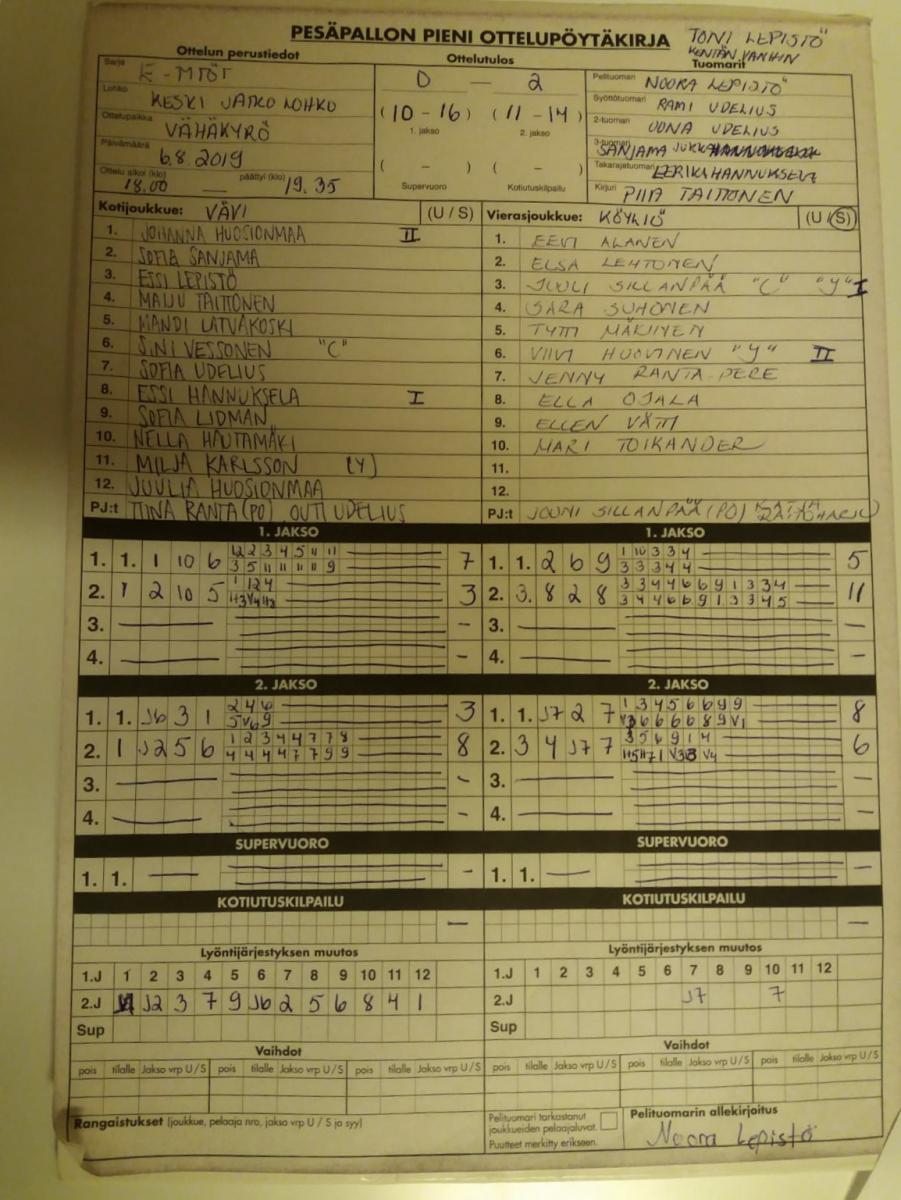 PESÄPALLON PIENI OTTELUPÖYTÄKIRJA
TONI LEPISTÖ
KENTÄN VANHIN
Ottelun perustiedot
Sarja
Lohko KESKI JATKO LOHKO
Ottelupaikka VÄHÄKYRÖ
Päivämäärä 6.8.2019
Ottelu alkoi (klo) 18.00 — päättyi (klo) 19.35
Ottelutulos
0 — 2
(10 - 16) (11 - 14)
1. jakso 2. jakso
( - ) ( - )
Supervuoro Kotiutuskilpailu
Tuomarit
Pelituomari NOORA LEPISTÖ
Syöttötuomari RAMI UDELIUS
2-tuomari OONA UDELIUS
3-tuomari SANJAMA JUKKA
Takarajatuomari EERIKA HANNUKSELA
Kirjuri PIIA TAITTONEN
Kotijoukkue: VÄVI (U / S)
1. JOHANNA HUOSIONMAA II
2. SOFIA SANJAMA
3. ESSI LEPISTÖ
4. MAIJU TAITTONEN
5. MANDI LATVAKOSKI
6. SINI VESSONEN "C"
7. SOFIA UDELIUS
8. ESSI HANNUKSELA I
9. SOFIA LIDMAN
10. NELLA HAUTAMÄKI
11. MILJA KARLSSON (Y)
12. JUULIA HUOSIONMAA
PJ:t TIINA RANTA (PO) OUTI UDELIUS
Vierasjoukkue: KÖYLIÖ (U / S)
1. EEVI ALANEN
2. ELSA LEHTONEN
3. JUULI SILLANPÄÄ "C" "Y" I
4. SARA SUHONEN
5. TYTTI MÄKINEN
6. VIIVI HUOVINEN "Y" II
7. JENNY RANTA-PERE
8. ELLA OJALA
9. ELLEN VÄTTI
10. MARI TOIKANDER
11.
12.
PJ:t JOUNI SILLANPÄÄ (PO)
1. JAKSO
1. 1. 1 10 6 7
12 2 3 4 5 11 11
3 5 11 11 11 11 9
2. 1 2 10 5 3
1 12 4
3. — -
4. — -
1. JAKSO
1. 1. 2 6 9 5
1 10 3 3 4
3 3 3 4 4
2. 3. 8 2 8 11
3 3 4 4 6 6 9 1 3 3 4
3 4 4 6 6 9 1 3 3 4 5
3. — -
4. — -
2. JAKSO
1. 1. J6 3 1 3
2 4 6
5 V6 9
2. 1 J2 5 6 8
1 2 3 4 4 7 7 8
4 4 4 4 7 7 9 9
3. — -
4. — -
2. JAKSO
1. 1. J7 2 7 8
1 3 4 5 6 6 9 9
V3 6 6 6 6 8 9 V1
2. 3 4 J7 7 6
3 5 6 9 1 4
3. — -
4. — -
SUPERVUORO
1. 1. — -
SUPERVUORO
1. 1. — -
KOTIUTUSKILPAILU
—
KOTIUTUSKILPAILU
—
Lyöntijärjestyksen muutos
1.J 1 2 3 4 5 6 7 8 9 10 11 12
2.J J2 3 7 9 J6 2 5 6 8 4 1
Sup
Lyöntijärjestyksen muutos
1.J 1 2 3 4 5 6 7 8 9 10 11 12
2.J J7 7
Sup
Vaihdot
pois tilalle Jakso vrp U / S pois tilalle Jakso vrp U / S pois tilalle Jakso vrp U / S
Vaihdot
pois tilalle Jakso vrp U / S pois tilalle Jakso vrp U / S pois tilalle Jakso vrp U / S
Rangaistukset (joukkue, pelaaja nro, jakso vrp U / S ja syy)
Pelituomari tarkastanut
joukkueiden pelaajaluvat.
Puutteet merkitty erikseen.
Pelituomarin allekirjoitus
Noora Lepistö